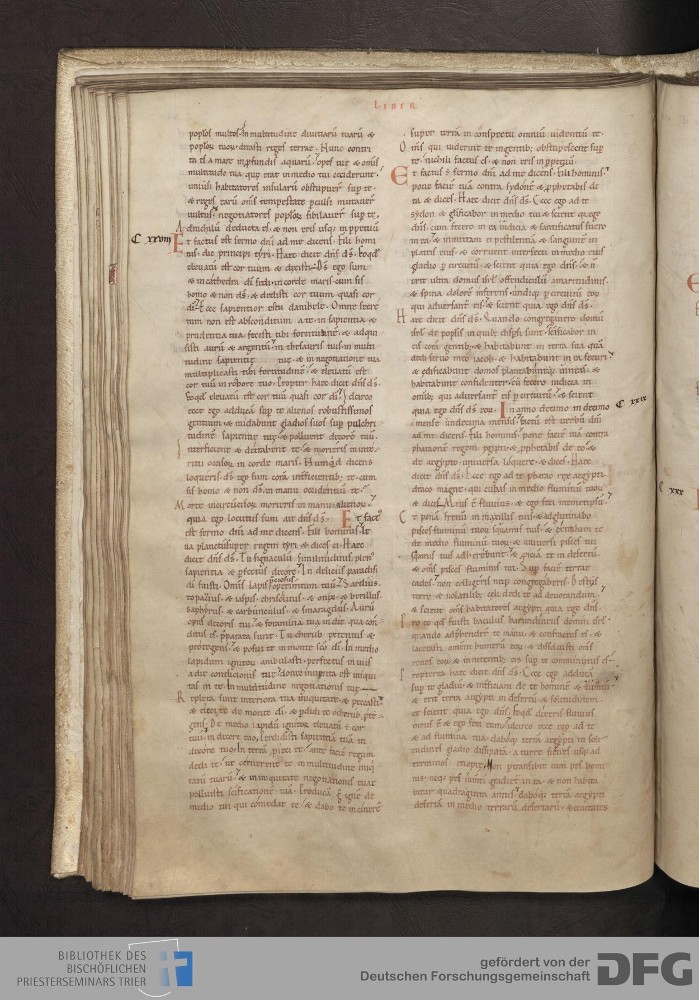 LIBER
populos multos. In multitudine diuitiarū tuarū &
populorū tuorū ditasti reges terrae. Nunc contri
ta es a mari in profundis aquarū opes tuę & omnis
multitudo tua quę erat in medio tui ceciderunt.
uniuersi habitatores insularū obstupuerunt sup te.
& reges earū oms tempestate perculsi mutauer
uultus. negotiatores populorū sibilauer sup te.
Ad nichilū deducta es. & non eris usq; in ppetuū
C xxviii Et factus est sermo dni ad me dicens. Fili homi
nis. dic principi tyri. Haec dicit dns ds. Eo qd
eleuatū est cor tuum & dixisti. Ds ego sum
& in cathedra di sedi in corde maris. cum sis
homo & non ds. & dedisti cor tuum quasi cor
di. Ecce sapientior es tu danihele. Omne secre
tum non est absconditum a te. in sapientia &
prudentia tua fecisti tibi fortitudinē. & adqui
sisti aurū & argentū in thesauris tuis. in multi
tudine sapientię tuę. & in negotiatione tua
multiplicasti tibi fortitudinē. & eleuatū est
cor tuū in robore tuo. Propter haec dicit dns ds.
Eo qd eleuatū est cor tuū quasi cor di. Idcirco
ecce ego adducā sup te alienos robustissimos
gentium. & nudabunt gladios suos sup pulchri
tudinē sapientię tuę. & polluent decorē tuū.
Interficient & detrahent te. & morieris in inte
ritu occisorū in corde maris. Numqd dicens
loqueris. ds ego sum corā interficientib; te. cum
sis homo & non ds. in manu occidentiū te.
Morte incircūcisorū morieris in manu alienorū.
quia ego locutus sum ait dns ds. Et fact
est sermo dni ad me dicens. Fili hominis le
ua planctū super regem tyri & dices ei. Haec
dicit dns ds. Tu signaculū similitudinis. plen
sapientia & pfectus decore. In deliciis paradisi
di fuisti. Omnis lapis pretiosus operimentum tuū. Sardius.
topazius. & iaspis. chrisolitus. & onix. & berillus.
saphyrus. & carbunculus. & smaragdus. Aurū
opus decoris tui. & foramina tua in die qua con
ditus es pparata sunt. Tu cherub extentus &
protegens. & posui te in monte sco di. In medio
lapidum ignitorū ambulasti. perfectus in uiis
a die conditionis tuę. donec inuenta est iniqui
tas in te. In multitudine negotiationis tuę
Repleta sunt interiora tua iniquitate. & peccasti.
& eieci te de monte di. & pdidi te o cherub pte
gens. De medio lapidū ignitorū eleuatū ē cor
tuū in decore tuo. Perdidisti sapientiā tuā in
decore tuo. In terrā pieci te. ante faciē regum
dedi te. ut cernerent te. in multitudine iniq
tatū tuarū. & in iniquitate negotiationis tuae
polluisti scificationē tuā. Producā g ignē de
medio tui qui comedat te. & dabo te in cinerē
super terrā in conspectu omniū uidentiū te.
Oms qui uiderint te in gentib; obstupescent sup
te. nichili factus es. & non eris in ppetuū
Et factus ē sermo dni ad me dicens. Fili hominis.
pone faciē tuā contra sydonē. & pphetabis de
ea & dices. Haec dicit dns ds. Ecce ego ad te
sydon. & glificabor in medio tui. & scient qa ego
dns. cum fecero in ea iudicia. & sanctificatus fuero
in ea. & inmittam ei pestilentiā. & sanguinē in
plateis eius. & corruent interfecti in medio eius
gladio p circuitū. & scient quia ego dns. & n
erit ultra domui isrl offendiculū amaritudinis.
& spina dolorē inferens undiq; p circuitū eoꝵ
qui aduersant eis. & scient quia ego dns ds.
Haec dicit dns ds. Quando congregauero domū
isrl de poplis in quib; dispsi sunt. scificabor in
eis corā gentib;. & habitabunt in terra sua quā
dedi seruo meo iacob. & habitabunt in ea securi
& edificabunt domos. plantabuntq; uineas. &
habitabunt confidenter. cū fecero iudicia in
omib; qui aduersant eis p circuitū. & scient
quia ego dns ds eoꝵ. In anno decimo in decimo C xxix
mense undecima mensis. factū est uerbū dni
ad me dicens. Fili hominis. pone faciē tuā contra
pharaonē regem egypti. & pphetabis de eo. &
de aegypto uniuersa. loquere & dices. Haec
dicit dns ds. Ecce ego ad te pharao rex aegypti
draco magne. qui cubas in medio fluminū tuoꝵ
& dicis. Meus ē fluuius. & ego feci memetipsū.
Et ponā frenū in maxillis tuis. & adglutinabo
pisces fluminū tuoꝵ squamis tuis. & extraham te
de medio fluminū tuoꝵ. & uniuersi pisces tui
squamis tuis adherebunt. & piciā te in desertū
& oms pisces fluminis tui. Sup faciē terrae
cades. non colligeris neq; congregaberis. Bestiis
terrę. & uolatilib; celi dedi te ad deuorandum.
& scient oms habitatores aegypti quia ego dns.
Pro eo qd fuisti baculus harundineus domui isrl.
quando adphender te manu. & confractus es. &
lacerasti omnem humerū eoꝵ. & dissoluisti oms
renes eoꝵ. & innitentib; eis sup te comminutus es.
Propterea haec dicit dns ds. Ecce ego adducā
sup te gladiū. & interficiam de te hominē & iumentū.
& erit terra aegypti in desertū. & solitudinem.
et scient quia ego dns. Eo qd dixeris fluuius
meus ē & ego feci eum. idcirco ecce ego ad te
& ad flumina tua. daboq; terrā aegypti in soli
tudines gladio dissipatā. a turre sienes usq; ad
terminos ethiopię. Non pertransibit eam pes homi
nis. neq; pes iumti gradiet in ea. & non habita
bitur quadraginta annis. daboq; terrā aegypti
desertā in medio terrarū desertarū. & ciuitates
C xxx
BIBLIOTHEK DES
BISCHÖFLICHEN
PRIESTERSEMINARS TRIER
gefördert von der
Deutschen Forschungsgemeinschaft
DFG